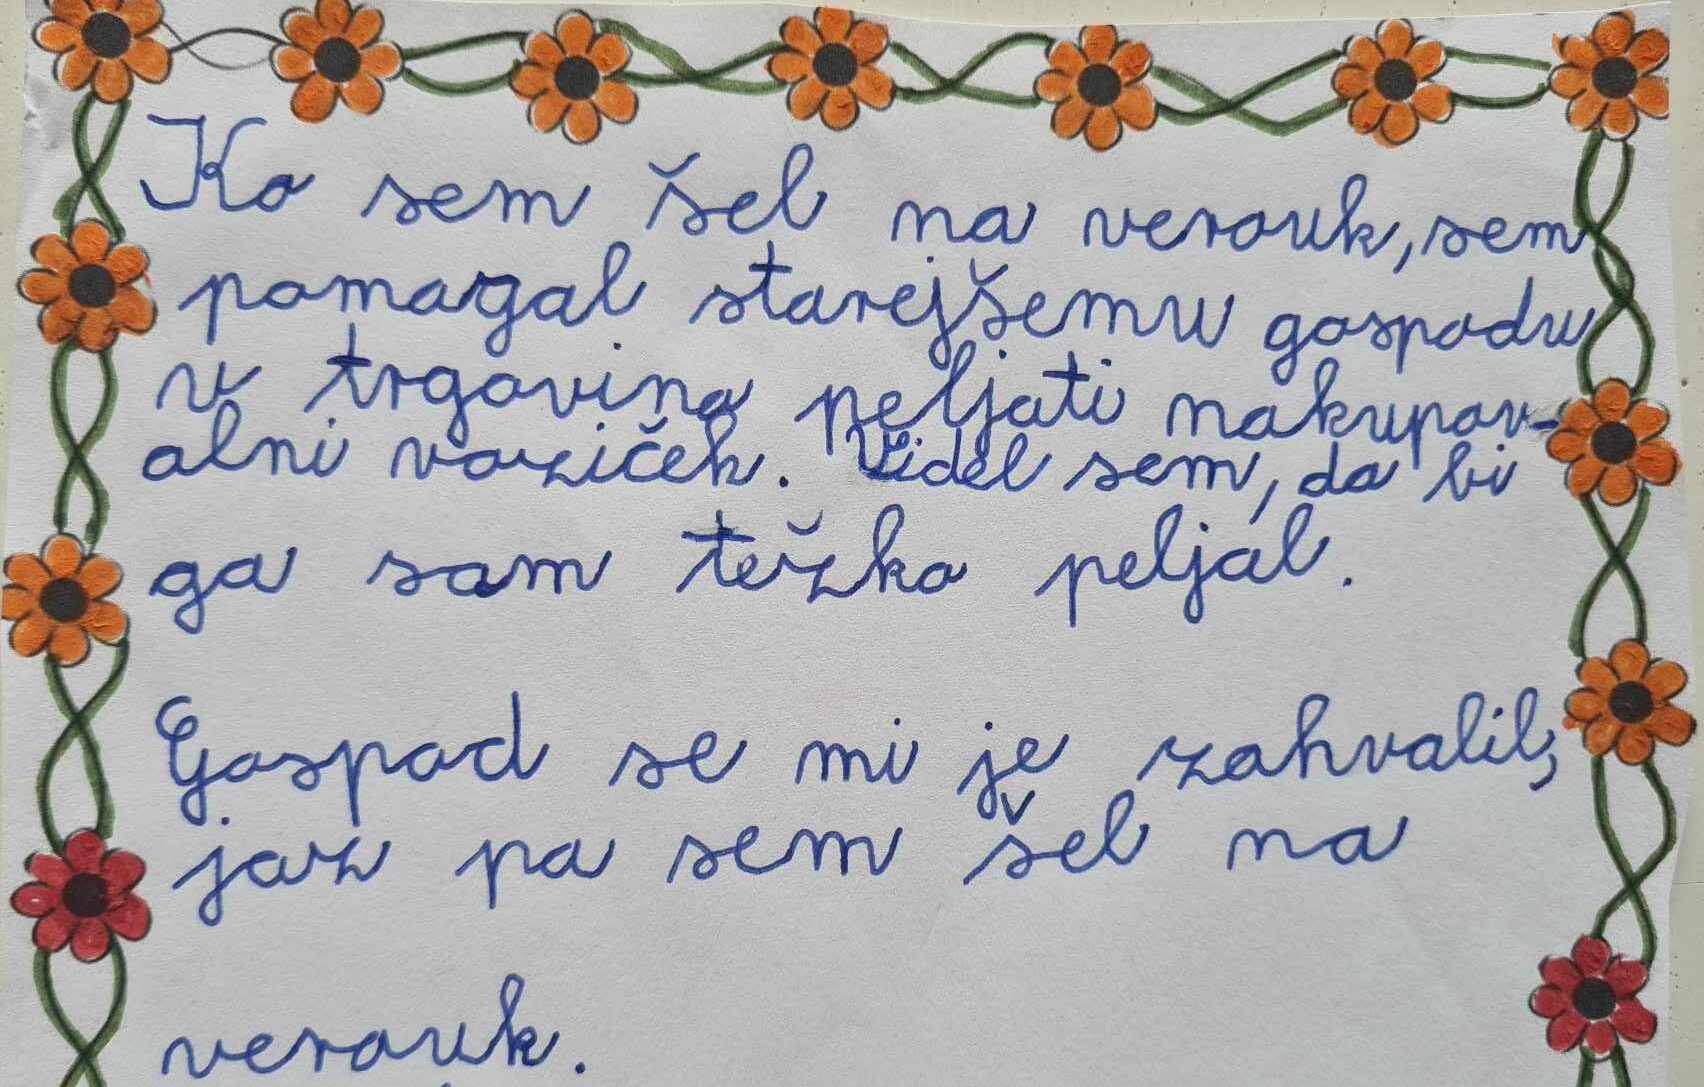 Ko sem šel na verouk, sem
pomagal starejšemu gospodu
v trgovino peljati nakupov-
alni voziček. Videl sem, da bi
ga sam težko peljal.
Gospod se mi je zahvalil,
jaz pa sem šel na
verouk.